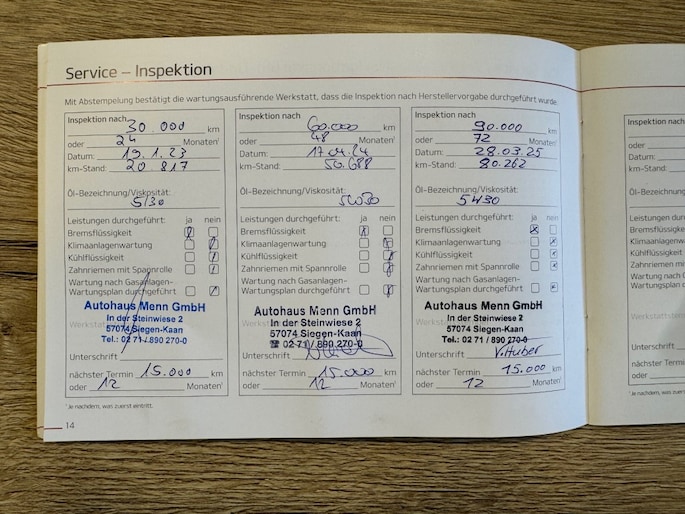 Service – Inspektion
Mit Abstempelung bestätigt die wartungsausführende Werkstatt, dass die Inspektion nach Herstellervorgabe durchgeführt wurde.
Inspektion nach 30.000 km
oder 24 Monaten¹
Datum: 19.1.23
km-Stand: 20 817
Öl-Bezeichnung/Viskosität:
5/30
Leistungen durchgeführt: ja nein
Bremsflüssigkeit
Klimaanlagenwartung
Kühlflüssigkeit
Zahnriemen mit Spannrolle
Wartung nach Gasanlagen-
Wartungsplan durchgeführt
Autohaus Menn GmbH
In der Steinwiese 2
57074 Siegen-Kaan
Tel.: 02 71 / 890 270-0
Unterschrift
nächster Termin 15.000 km
oder 12 Monaten¹
Inspektion nach 60.000 km
oder 48 Monaten¹
Datum: 17.04.24
km-Stand: 50.688
Öl-Bezeichnung/Viskosität:
5W30
Leistungen durchgeführt: ja nein
Bremsflüssigkeit
Klimaanlagenwartung
Kühlflüssigkeit
Zahnriemen mit Spannrolle
Wartung nach Gasanlagen-
Wartungsplan durchgeführt
Autohaus Menn GmbH
In der Steinwiese 2
57074 Siegen-Kaan
☎ 02 71 / 890 270-0
Unterschrift
nächster Termin 15.000 km
oder 12 Monaten¹
Inspektion nach 90.000 km
oder 72 Monaten¹
Datum: 28.03.25
km-Stand: 80.262
Öl-Bezeichnung/Viskosität:
5W30
Leistungen durchgeführt: ja nein
Bremsflüssigkeit
Klimaanlagenwartung
Kühlflüssigkeit
Zahnriemen mit Spannrolle
Wartung nach Gasanlagen-
Wartungsplan durchgeführt
Autohaus Menn GmbH
In der Steinwiese 2
57074 Siegen-Kaan
Tel.: 02 71 / 890 270-0
Unterschrift V. Huber
nächster Termin 15.000 km
oder 12 Monaten¹
¹Je nachdem, was zuerst eintritt.
14